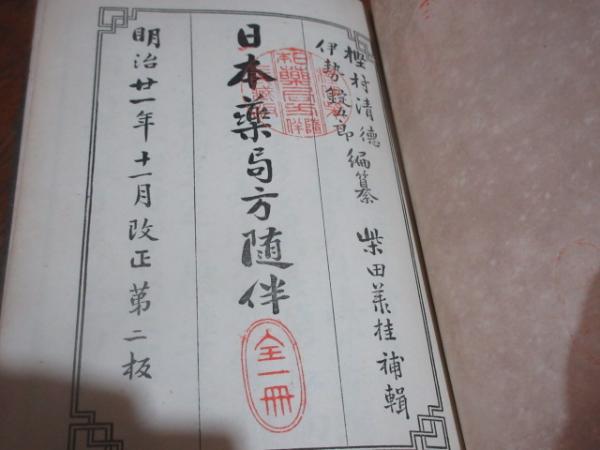 樫村清德
伊勢錠五郎 編纂 柴田承桂 補輯
日本藥局方随伴
全一冊
明治廿一年十一月改正第二板